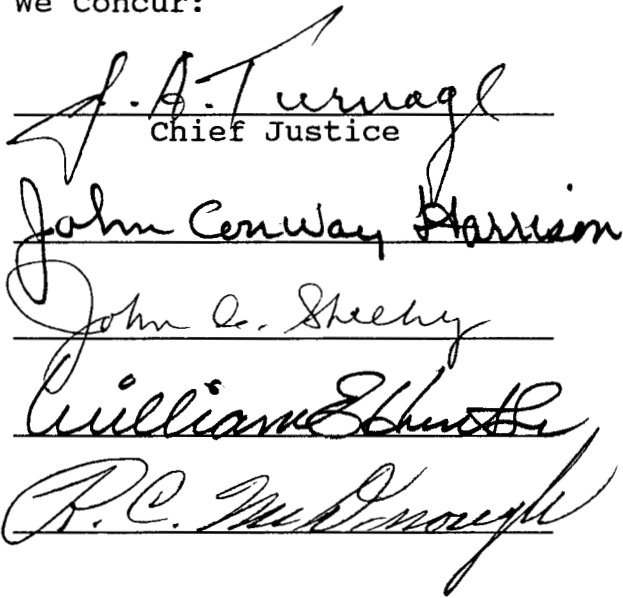 We Concur:
J. A. Turnage
Chief Justice
John Conway Harrison
John C. Sheehy
William E. Hunt Sr.
R. C. McDonough